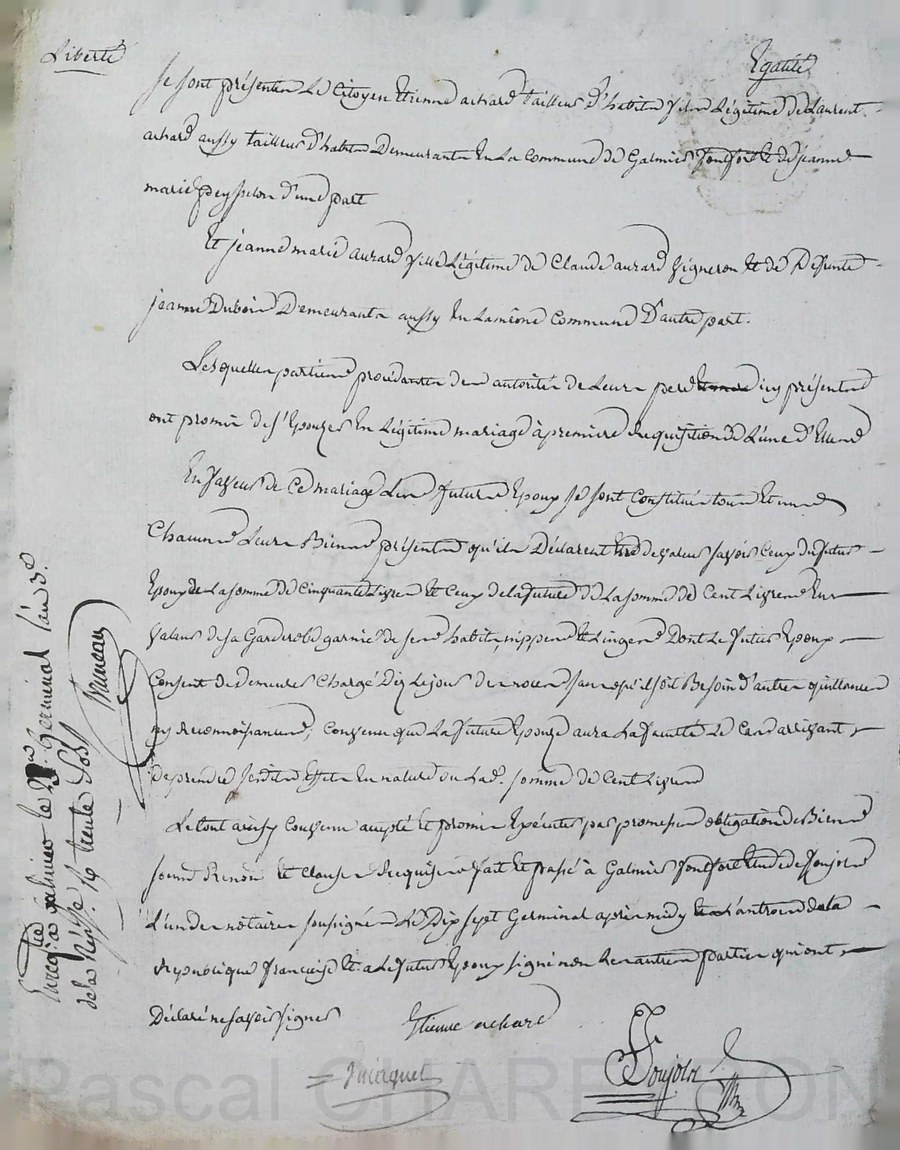 Liberté Egalité
Se sont présentés Le Citoyen Etienne achard tailleur d'habits fils Légitime de Laurent
achard aussy tailleur d'habits Demeurants En La Commune de Galmier fontforte et de jeanne
marie peysselon d'une part
Et jeanne marie aurard fille Légitime de Claude aurard Vigneron et de Defunte
jeanne Dubois Demeurants aussy En La même Commune D'autre part.
Lesquelles parties procédantes des autorités de Leurs peres icy présents
ont promis de s'Epouzer En Légitime mariage à premiere Requisition De L'une d'Elles
En faveur de Ce mariage Les futurs Epoux se sont Constitués tous Et uns
Chacuns Leurs Biens présents qu'ils Déclarent être de valeur savoir Ceux du futur
Epoux de La somme de Cinquante Livres et Ceux de la future de La somme de Cent Livres En
Valeur de sa Garderobe garnie de ses habits, nippes et Linges Dont Le futur Epoux
Consent de demeurer Chargé Dez Le jour des noces sans qu'il soit Besoin d'autres quittances
ny Reconnoissances, Convenu que La future Epouze aura La faculté Le Cas arrivant
de prendre sesdits Effets En nature ou Lad. somme de Cent Livres
Le tout ainsy Convenu accepté et promis Exécuter par promesses obligation de Biens
soumis Renon et Clauses Requises fait et passé à Galmier fontforte Etude de Joujon
L'un des notaires soussignés Le Dix sept Germinal après midy L'an trois de la
Republique françoise et a Le futur Epoux signé non Les autres parties qui ont
Déclaré ne savoir signer Etienne achard
Enreg. à Galmier le 23 Germinal l'an 3e.
de la Répub. trente Sols
Pascal CHAREYRON